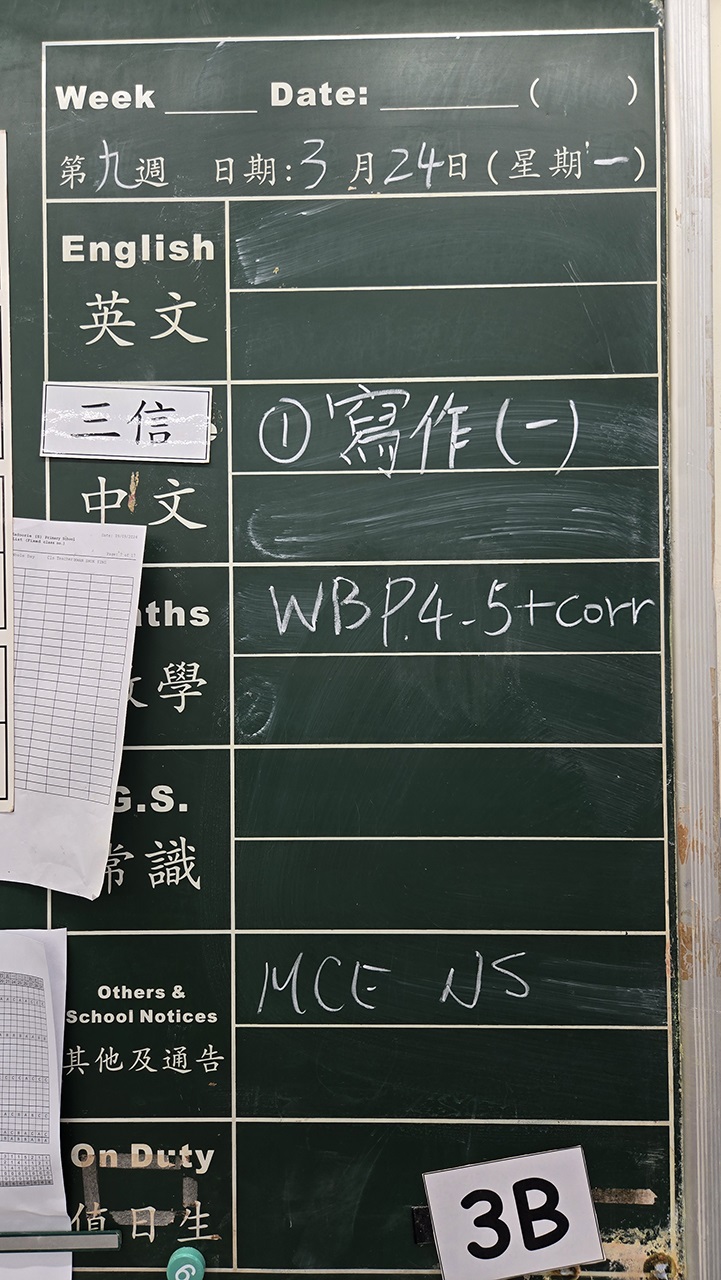 Week Date: ( )
第九週 日期:3月24日(星期一)
English
英文
三信
①寫作(一)
中文
WB P.4-5+corr
學
G.S.
常識
Others &
School Notices
MCE NS
其他及通告
On Duty
值日生
3B
6